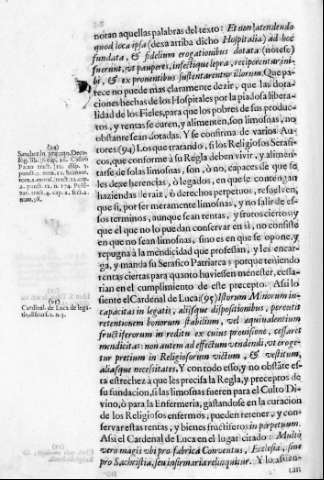 notan aquellas palabras del texto: Et non attendendo
quod loca ipsa (dexa arriba dicho Hospitalia) ad hoc
fundata, & fidelium erogationibus dotata (notese)
fuerint, vt pauperes, infectique lepra, reciperentur ini-
bi, & ex prouentibus sustentarentur illorum. Que pa-
rece no puede mas claramente dezir, que las dota-
ciones hechas de los Hospitales por la piadosa libera-
lidad de los Fieles, para que los pobres de sus produc-
tos, y rentas se curen, y alimenten, son limosnas, no
obstante sean dotadas. Y se confirma de varios Au-
tores (94) Los que tratando, si los Religiosos Serafi-
cos, que conforme à su Regla deben vivir, y alimen-
tarse de solas limosnas, son, ò no, capaces de que se
les dexe herencias, ò legados, en que se contengan
haziendas raìzes, ò derechos perpetuos, resuelven,
que si, por ser meramente limosnas, y no salir de es-
sos terminos, aunque sean rentas, y frutos ciertos; y
que el que no lo puedan conservar en sì, no consiste
en que no sean limosnas, sino es en que se opone, y
repugna à la mendicidad que professan, y les encar-
ga, y manda su Serafico Patriarca; porque teniendo
rentas ciertas para quanto huviessen menester, cessa-
rian en el cumplimiento de este precepto. Assi lo
siente el Cardenal de Luca (95) Istorum Minorum in-
capacitas in legatis, aliisque dispositionibus, percutit
retentionem bonorum stabilium, vel equivalentium
fructiferorum in reditu ex cuius provisione, cessaret
mendicitas: non autem ad effectum vendendi, vt eroge-
tur pretium in Religiosorum victum, & vestitum,
aliasque necesitates. Y con todo esso, y no obstàte es-
ta estrechez à que les precisa la Regla, y preceptos de
su fundacion, si las limosnas fueren para el Culto Di-
vino, ò para la Enfermeria, gastandose en la curacion
de los Religiosos enfermos, pueden retener, y con-
servar estas rentas, y bienes fructiferos in perpetuum.
Assi el Cardenal de Luca en el lugar citado: Multò
verò magis vbi pro fabrica Conventus, Ecclesiæ, sive
pro Sachristia, seu infirmaria relinquitur. Y lo assien-
(94)
(95)
Cardinal. de Luca de lega-